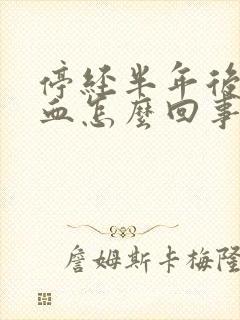 停經半年後
血怎麼回事
詹姆斯卡梅隆